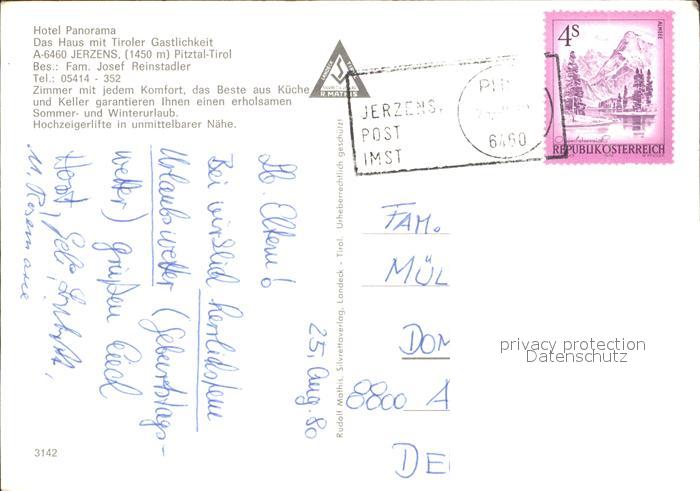 Hotel Panorama
Das Haus mit Tiroler Gastlichkeit
A-6460 JERZENS, (1450 m) Pitztal-Tirol
Bes.: Fam. Josef Reinstadler
Tel.: 05414 - 352
Zimmer mit jedem Komfort, das Beste aus Küche
und Keller garantieren Ihnen einen erholsamen
Sommer- und Winterurlaub.
Hochzeigerlifte in unmittelbarer Nähe.
R. MATHIS
JERZENS,
POST
IMST
6460
4S
ALMSEE
REPUBLIK ÖSTERREICH
25. Aug. 80
Lb. Eltern!
Bei wirklich herrlichstem
Urlaubswetter (Geburtstags-
wetter) grüßen Euch
Horst,
u. Rosemarie
Rudolf Mathis, Silvrettaverlag, Landeck - Tirol. Urheberrechtlich geschützt!
FAM.
MÜL
DOM
8800 A
DE
privacy protection
Datenschutz
3142